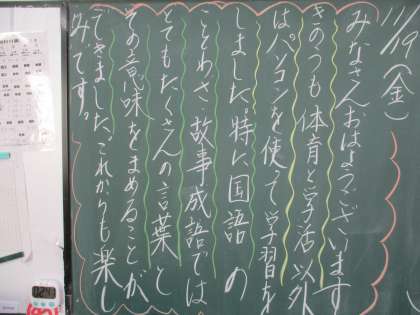 11/19(金)
みなさんおはようございます
きのうも体育と学活以外
はパソコンを使って学習を
しました。特に国語の
ことわざ、故事成語では
とてもたくさんの言葉と
その意味をまとめることが
できました。これからも楽し
みです。